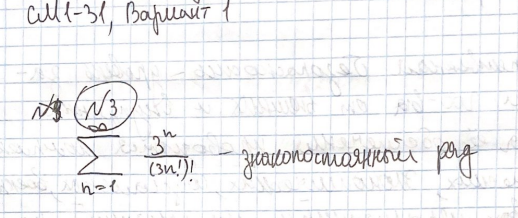 СМ1-31, Вариант 1
№3
∞
∑ 3ⁿ/(3n!)! - знакопостоянный ряд
n=1